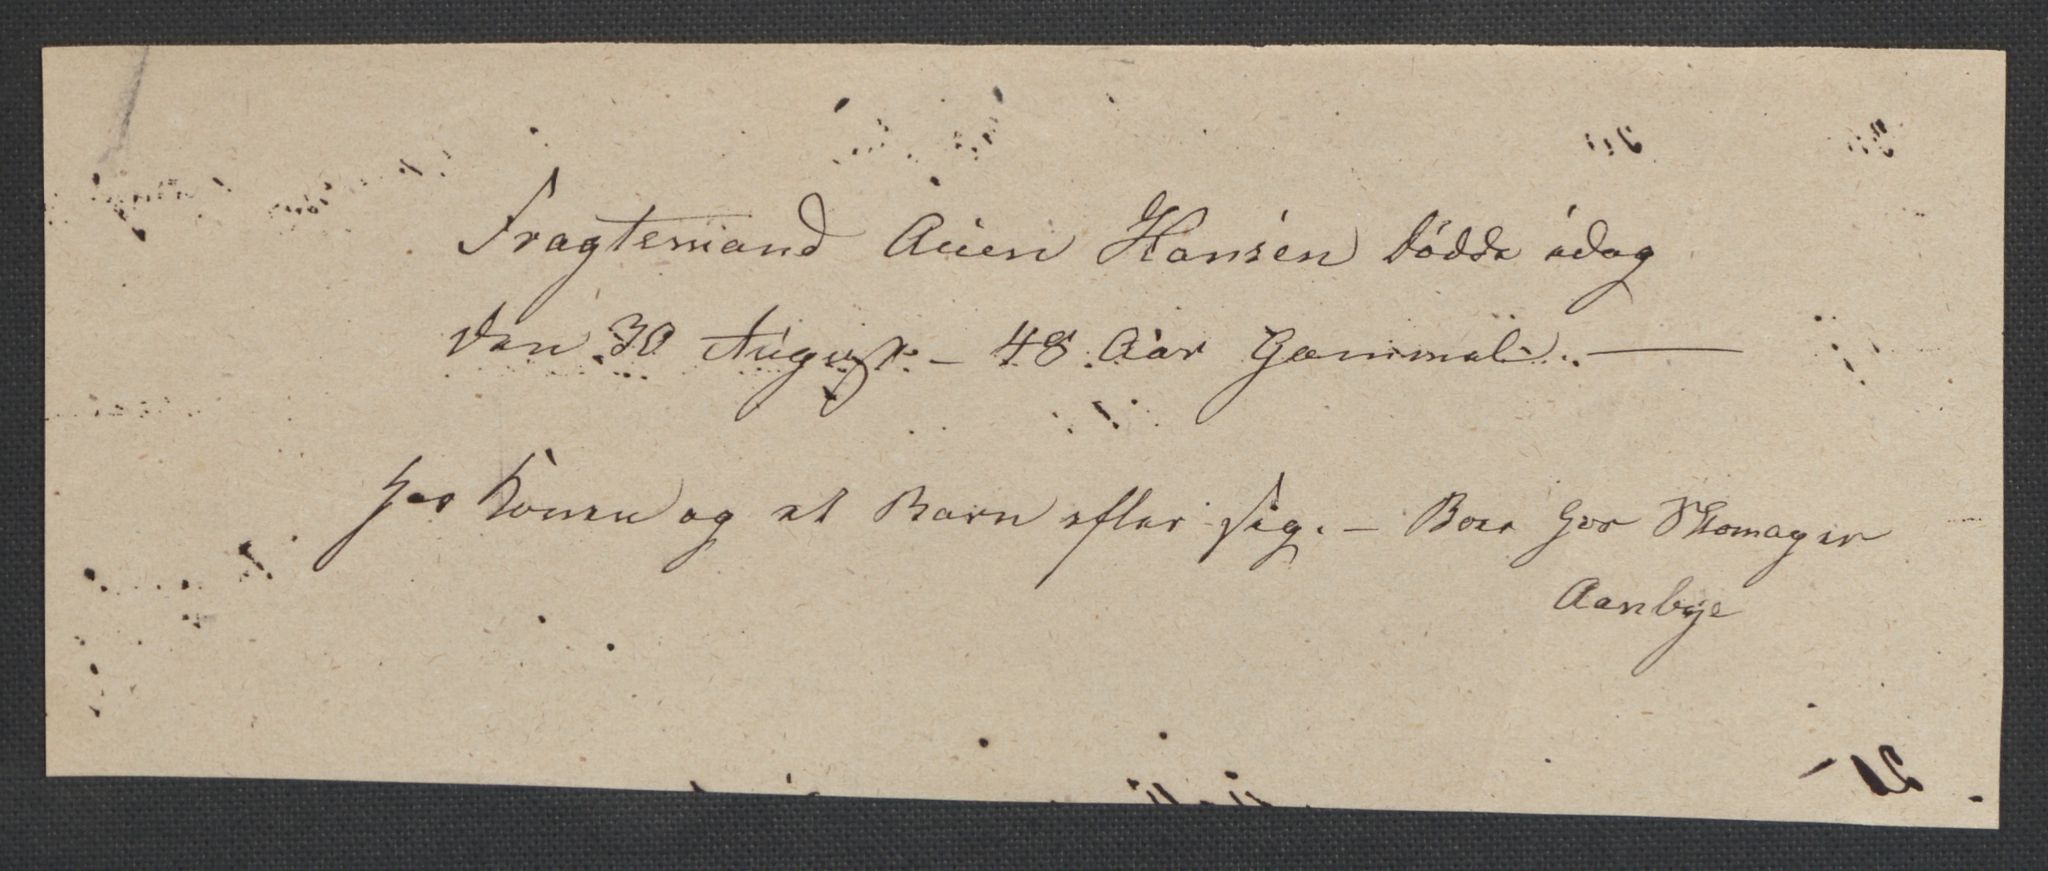 Fragtemand Aúen Hansen dødde idag
den 30 August – 48 Aar Gammel. —
har Konen og et Barn efter sig. – Boer hos Skomager
Aanbye